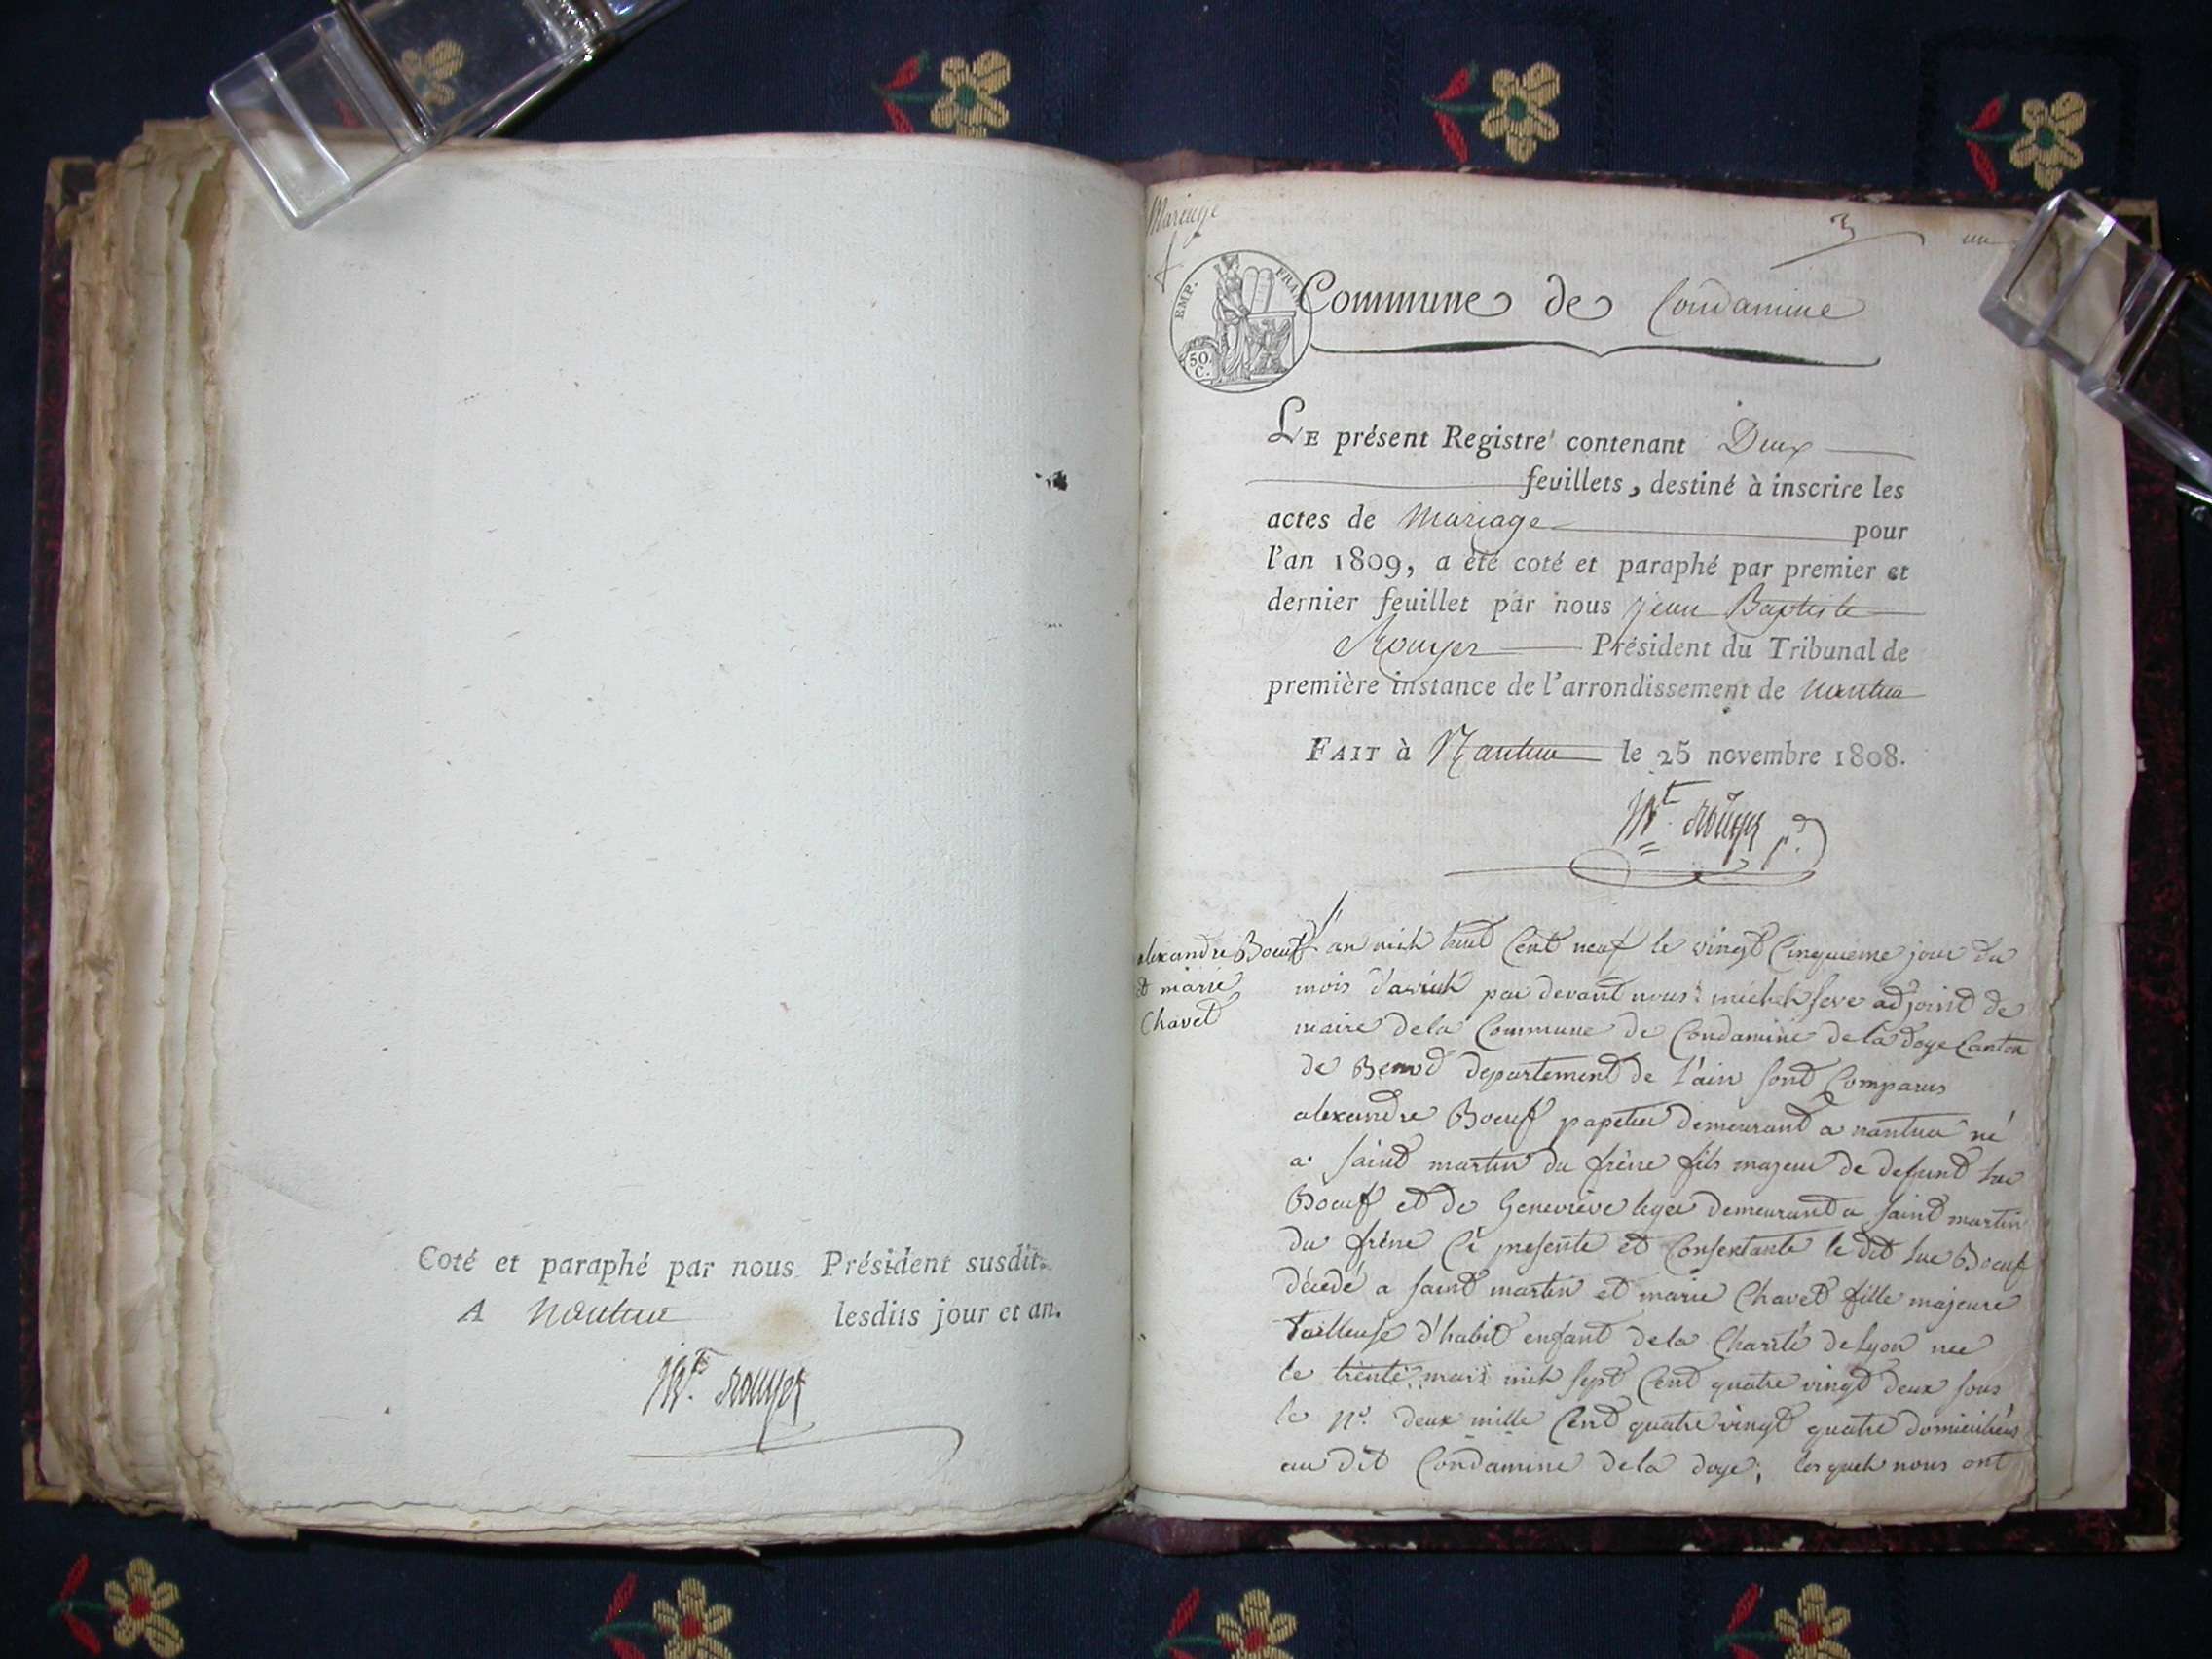 Coté et paraphé par nous Président susdit.
A nantua lesdits jour et an.
Mt. Rouyer
Mariage
3
un
EMP. FRA
50. C.
Commune de Condamine
LE présent Registre contenant Deux
feuillets, destiné à inscrire les
actes de mariage pour
l'an 1809, a été coté et paraphé par premier et
dernier feuillet par nous jean Baptiste
Rouyer Président du Tribunal de
première instance de l'arrondissement de nantua
FAIT à Nantua le 25 novembre 1808.
Mt. Rouyer pd.
alexandre Boeuf
et marie
Chavet
L'an mil huit Cent neuf le vingt Cinquieme jour du
mois d'avril par devant nous michel seve adjoint de
maire de la Commune de Condamine de la doye Canton
de departement de l'ain sont Comparus
alexandre Boeuf papetier demeurant a nantua né
a saint martin du frêne fils majeur de defunt luc
Boeuf et de Geneviève leger demeurant a saint martin
du frêne Ci presente et Consentante le dit luc Boeuf
décédé a saint martin et marie Chavet fille majeure
tailleuse d'habit enfant de la Charité de Lyon nee
le trente mars mil sept Cent quatre vingt deux sous
le no. deux mille Cent quatre vingt quatre domiciliés
au dit Condamine de la doye; les quels nous ont